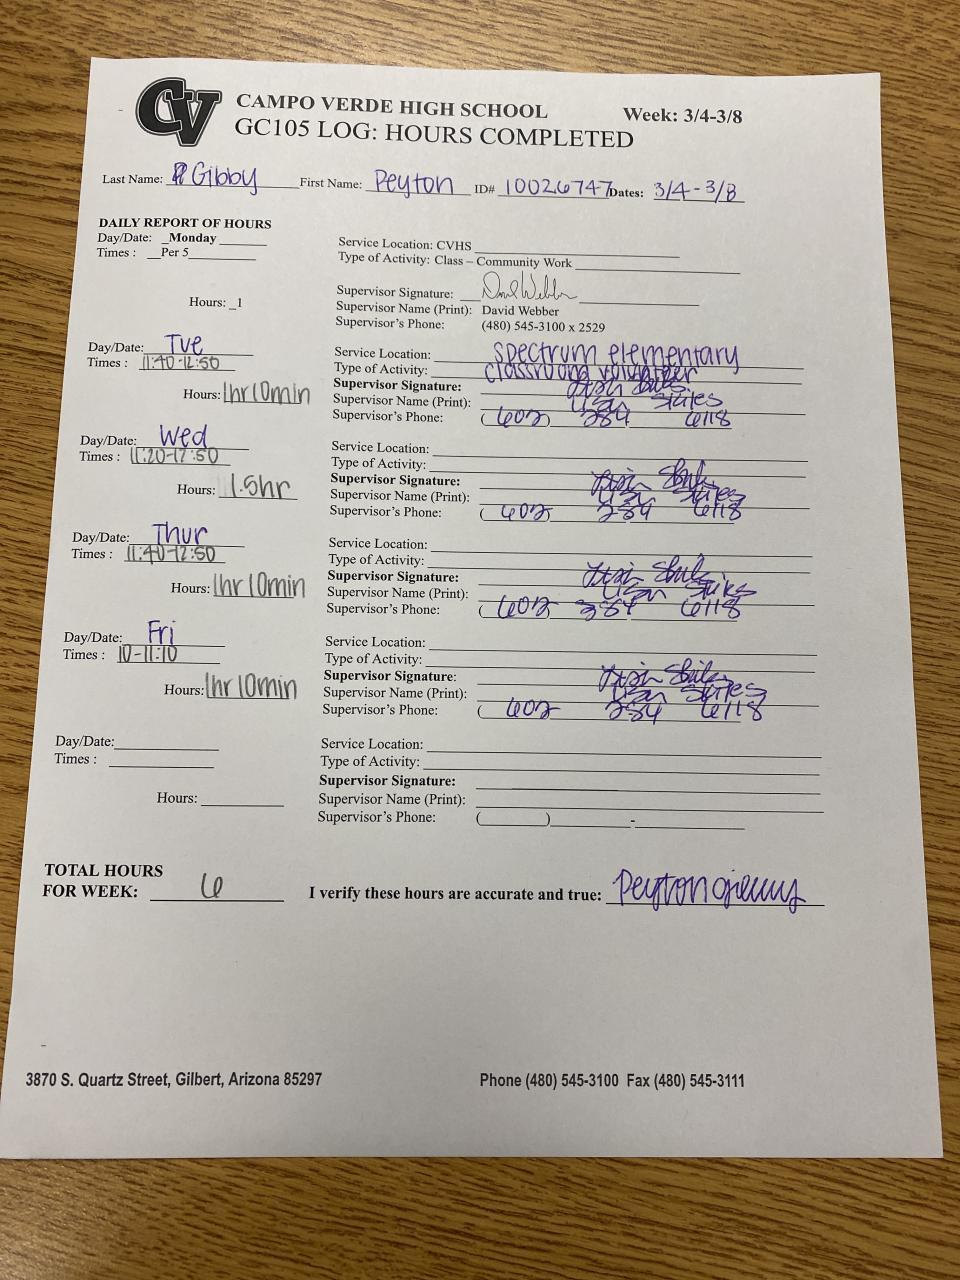 CV CAMPO VERDE HIGH SCHOOL Week: 3/4-3/8
GC105 LOG: HOURS COMPLETED
Last Name: Gibby First Name: Peyton ID# 10026747 Dates: 3/4-3/8
DAILY REPORT OF HOURS
Day/Date: _Monday
Times : Per 5
Service Location: CVHS
Type of Activity: Class – Community Work
Hours: _1
Supervisor Signature: David Webber
Supervisor Name (Print): David Webber
Supervisor's Phone: (480) 545-3100 x 2529
Day/Date: Tue
Times : 11:40-12:50
Hours: 1hr10min
Service Location: Spectrum elementary
Type of Activity: classroom volunteer
Supervisor Signature:
Supervisor Name (Print):
Supervisor's Phone: (602) 284 6118
Day/Date: Wed
Times : 11:20-12:50
Hours: 1.5hr
Service Location:
Type of Activity:
Supervisor Signature:
Supervisor Name (Print):
Supervisor's Phone: (602) 284 6118
Day/Date: Thur
Times : 11:40-12:50
Hours: 1hr10min
Service Location:
Type of Activity:
Supervisor Signature:
Supervisor Name (Print):
Supervisor's Phone: (602 284 6118
Day/Date: Fri
Times : 10-11:10
Hours: 1hr10min
Service Location:
Type of Activity:
Supervisor Signature:
Supervisor Name (Print):
Supervisor's Phone: ( 602 284 6118
Day/Date:
Times :
Hours:
Service Location:
Type of Activity:
Supervisor Signature:
Supervisor Name (Print):
Supervisor's Phone: ( ) -
TOTAL HOURS
FOR WEEK: 6 I verify these hours are accurate and true: Peyton
3870 S. Quartz Street, Gilbert, Arizona 85297 Phone (480) 545-3100 Fax (480) 545-3111